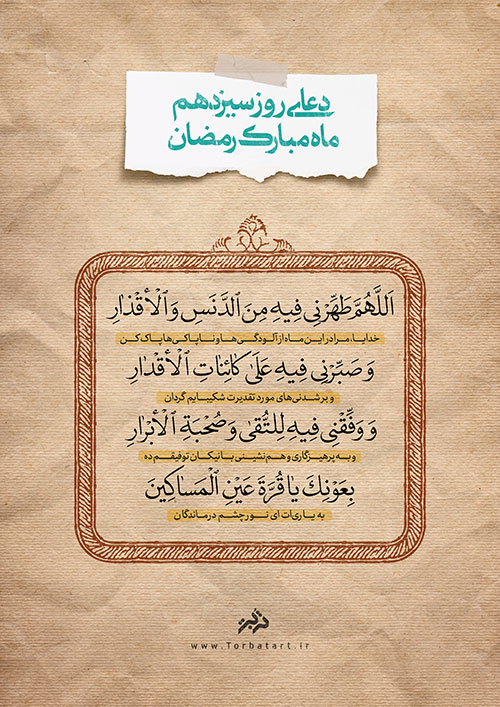 دعای روز سیزدهم
ماه مبارک رمضان
اَللَّهُمَّ طَهِّرْنِی فِیهِ مِنَ ٱلدَّنَسِ وَ ٱلْأَقْذَارِ
خدایا، مرا در این ماه از آلودگی‌ها و ناپاکی‌ها پاک کن
وَ صَبِّرْنِی فِیهِ عَلَىٰ کَائِنَاتِ ٱلْأَقْدَارِ
و بر شدنی‌های مورد تقدیرت شکیبایم گردان
وَ وَفِّقْنِی فِیهِ لِلتُّقَىٰ وَ صُحْبَةِ ٱلْأَبْرَارِ
و به پرهیزگاری و هم‌نشینی با نیکان توفیقم ده
بِعَوْنِكَ یَا قُرَّةَ عَیْنِ ٱلْمَسَاکِینَ
به یاری‌ات ای نور چشم درماندگان
تربت
www.Torbatart.ir